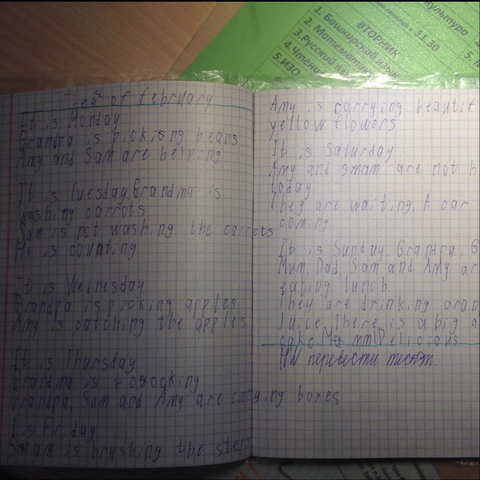 культура
11.30
ВТОРНИК
1. Башкирский
2. Математ
3. Русский
4. Чтени
5. ИЗО
of february
It is Monday
Grandpa is pickisng bears
Amy and Sam are helping
It is Tuesday, Grandma is
washing carrots
Sam is not washing the carrots
He is counting
It is Wednesday
Grandpa is picking apples
Amy is catching the apples
It is Thursday
Grandma is
Grandpa, Sam and Amy are carrying boxes
I is Friday
Smam is brushing the steps
Amy is carrying beautif
yellow flowers
It is Saturday
Amy and smam are not h
today.
they are waiting. A car
coming
It is Sunday. Grandpa, G
Mum, Dad Sam and Amy ar
eating lunch.
They are drinking oran
Juice. There is a big a
cake. Delicious
HW перевести текст.